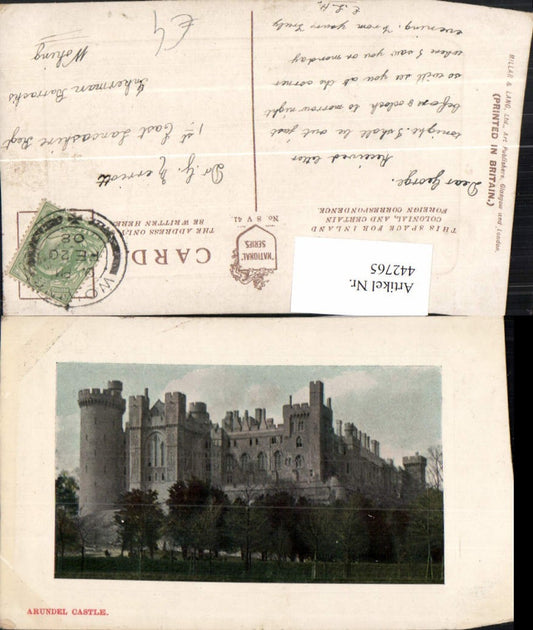 MILLAR & LANG, Ltd., Art Publishers, Glasgow and London.
(PRINTED IN BRITAIN.)
THIS SPACE FOR INLAND
COLONIAL, AND CERTAIN
FOREIGN CORRESPONDENCE.
"NATIONAL"
SERIES
No. S V 41.
CARD
THE ADDRESS ONLY
BE WRITTEN HERE.
Dear George.
Received letter
tonight. I shall be out just
before 8 oclock to morrow night
so will see you at the corner
when I saw you on monday
evening. From yours truly
Dr. G.
1st East Lancashire Regt
Inkerman Barracks
Woking
FE 20
08
Artikel Nr.
442765
ARUNDEL CASTLE.